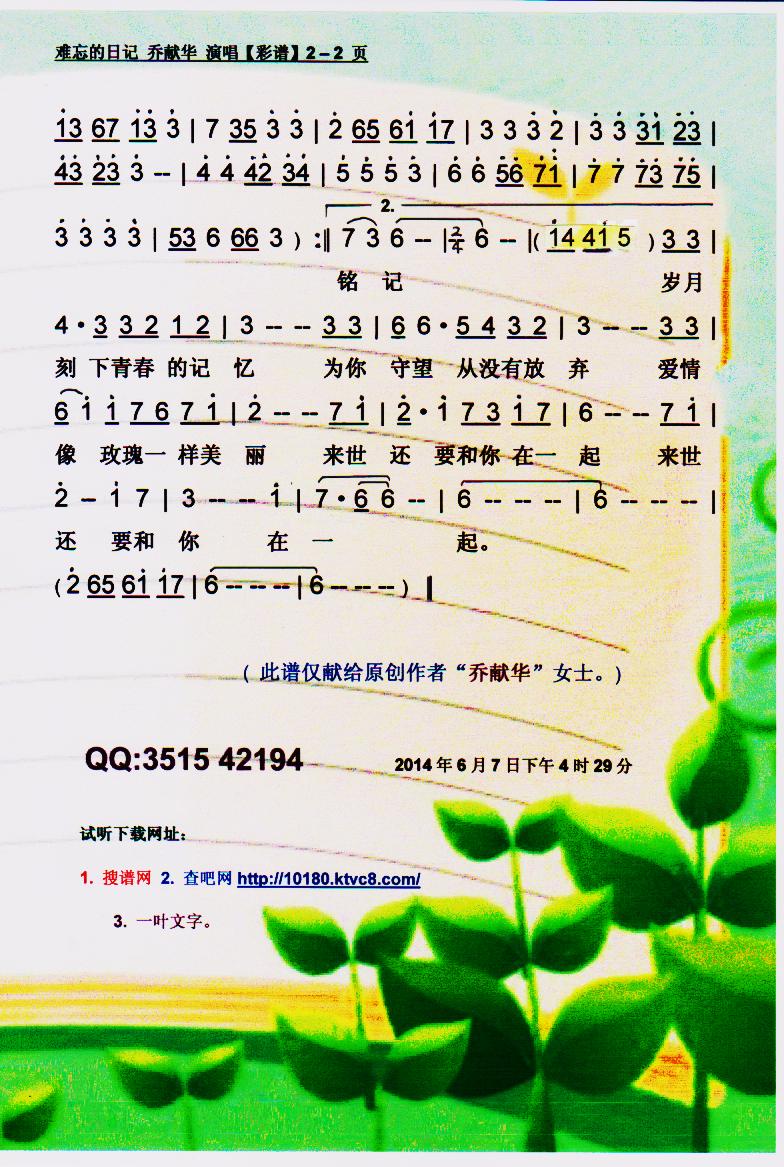 难忘的日记 乔献华 演唱【彩谱】2－2 页
1̇3 67 1̇3̇ 3̇ | 7 35 3̇ 3̇ | 2̇ 65 61̇ 1̇7 | 3 3̇ 3̇ 2̇ | 3̇ 3̇ 3̇1̇ 2̇3̇ |
4̇3̇ 2̇3̇ 3̇ -- | 4̇ 4̇ 4̇2̇ 3̇4̇ | 5̇ 5̇ 5̇ 3̇ | 6̇ 6̇ 5̇6̇ 7̇1̇ | 7̇ 7̇ 7̇3̇ 7̇5̇ |
2.
3̇ 3̇ 3̇ 3̇ | 53 6 66 3 ) :‖ 7 3 6 -- | 2/4 6 -- | ( 1̇4 41 5 ) 3 3 |
铭 记 岁月
4 · 3 3 2 1 2 | 3 -- -- 3 3 | 6 6 · 5 4 3 2 | 3 -- -- 3 3 |
刻 下青春 的记 忆 为你 守望 从没有放 弃 爱情
6 1̇ 1̇ 7 6 7 1̇ | 2̇ -- -- 7 1̇ | 2̇ · 1̇ 7 3 1̇ 7 | 6 -- -- 7 1̇ |
像 玫瑰一 样美 丽 来世 还 要和你 在一 起 来世
2̇ – 1̇ 7 | 3 -- -- 1̇ | 7 · 6 6 -- | 6 -- -- -- | 6 -- -- -- |
还 要和 你 在 一 起。
( 2̇ 65 61̇ 1̇7 | 6 -- -- -- | 6 -- -- -- ) ‖
( 此谱仅献给原创作者“乔献华”女士。)
QQ:3515 42194 2014 年 6 月 7 日下午 4 时 29 分
试听下载网址：
1. 搜谱网 2. 查吧网 http://10180.ktvc8.com/
3. 一叶文字。